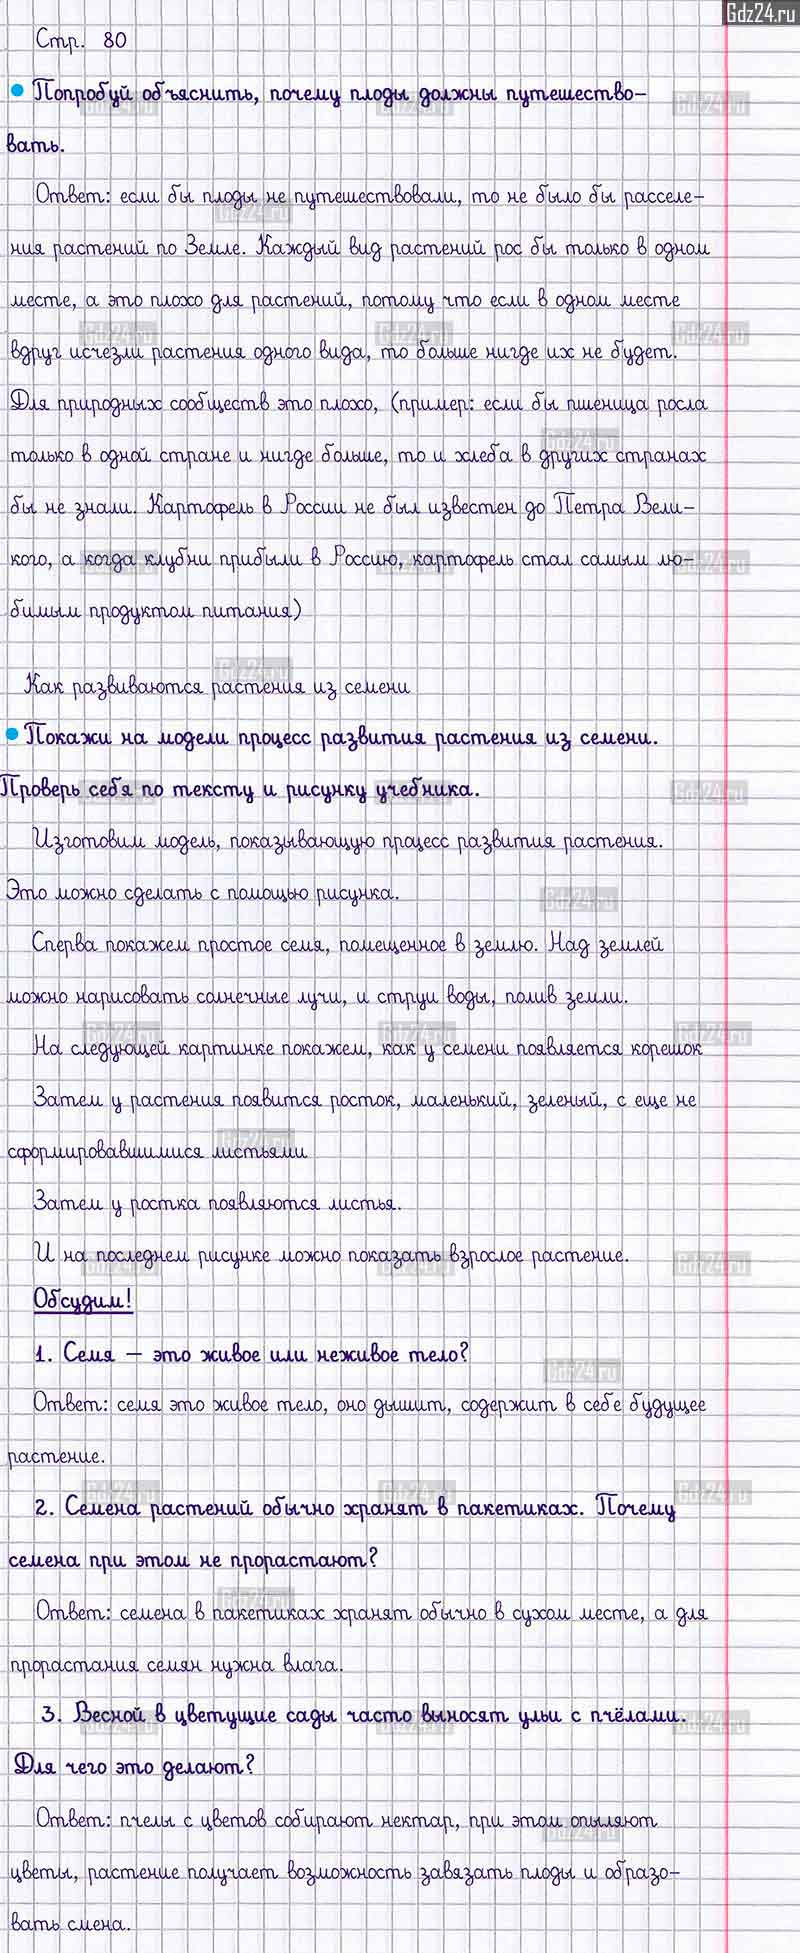 Gdz24.ru
Стр. 80
Попробуй объяснить, почему плоды должны путешество-
вать.
Ответ: если бы плоды не путешествовали, то не было бы расселе-
ния растений по Земле. Каждый вид растений рос бы только в одном
месте, а это плохо для растений, потому что если в одном месте
вдруг исчезли растения одного вида, то больше нигде их не будет.
Для природных сообществ это плохо, (пример: если бы пшеница росла
только в одной стране и нигде больше, то и хлеба в других странах
бы не знали. Картофель в России не был известен до Петра Вели-
кого, а когда клубни прибыли в Россию, картофель стал самым лю-
бимым продуктом питания)
Как развиваются растения из семени
Покажи на модели процесс развития растения из семени.
Проверь себя по тексту и рисунку учебника.
Изготовим модель, показывающую процесс развития растения.
Это можно сделать с помощью рисунка.
Сперва покажем простое семя, помещенное в землю. Над землей
можно нарисовать солнечные лучи, и струи воды, полив земли.
На следующей картинке покажем, как у семени появляется корешок
Затем у растения появится росток, маленький, зеленый, с еще не
сформировавшимися листьями
Затем у ростка появляются листья.
И на последнем рисунке можно показать взрослое растение.
Обсудим!
1. Семя – это живое или неживое тело?
Ответ: семя это живое тело, оно дышит, содержит в себе будущее
растение.
2. Семена растений обычно хранят в пакетиках. Почему
семена при этом не прорастают?
Ответ: семена в пакетиках хранят обычно в сухом месте, а для
прорастания семян нужна влага.
3. Весной в цветущие сады часто выносят ульи с пчёлами.
Для чего это делают?
Ответ: пчелы с цветов собирают нектар, при этом опыляют
цветы, растение получает возможность завязать плоды и образо-
вать смена.